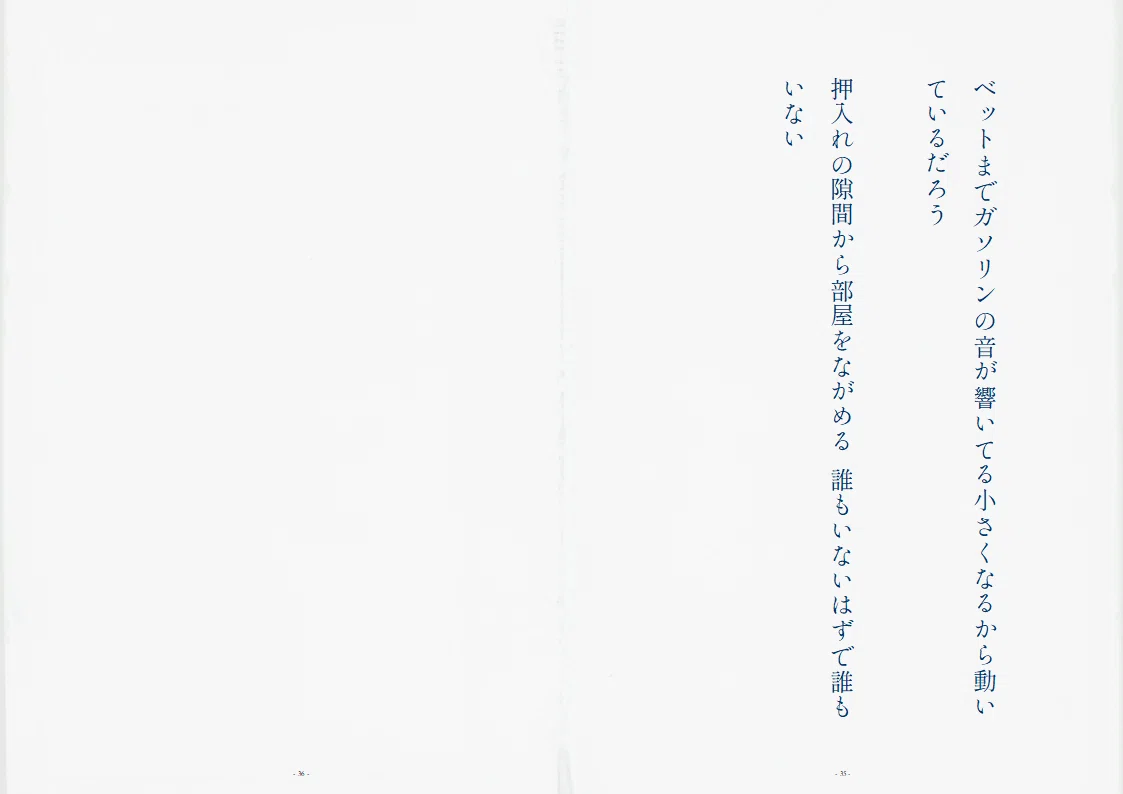 ベットまでガソリンの音が響いてる小さくなるから動い
ているだろう
押入れの隙間から部屋をながめる 誰もいないはずで誰も
いない
- 35 -
- 36 -